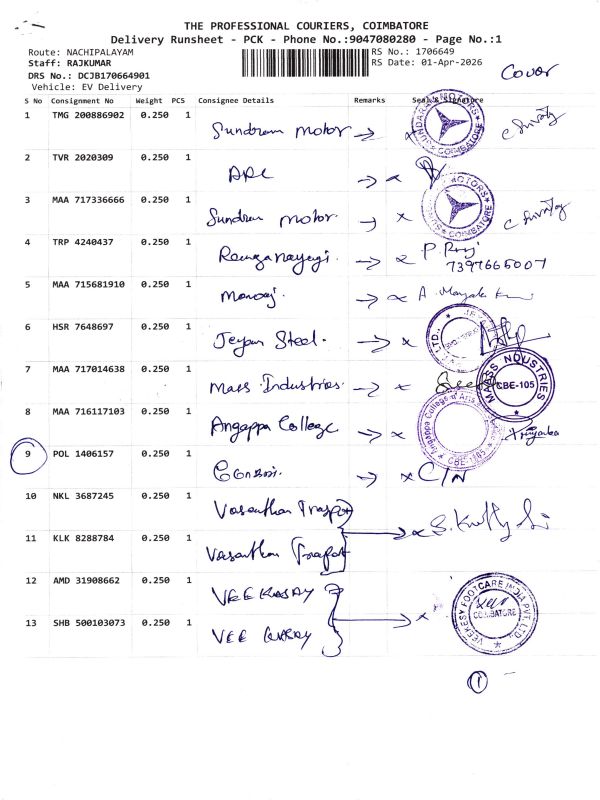 THE PROFESSIONAL COURIERS, COIMBATORE
Delivery Runsheet - PCK - Phone No.:9047080280 - Page No.:1
Route: NACHIPALAYAM
Staff: RAJKUMAR
DRS No.: DCJB170664901
Vehicle: EV Delivery
RS No.: 1706649
RS Date: 01-Apr-2026
Cover
S No Consignment No Weight PCS Consignee Details Remarks Seal & Signature
1 TMG 200886902 0.250 1 Sundram Motor
2 TVR 2020309 0.250 1
3 MAA 717336666 0.250 1 Sundram Motor
4 TRP 4240437 0.250 1 Ranganayagi P. Raj
7397665007
5 MAA 715681910 0.250 1 Manoj. A.
6 HSR 7648697 0.250 1 Jeyam Steel.
7 MAA 717014638 0.250 1 Mass Industries. MASS INDUSTRIES CBE-105
8 MAA 716117103 0.250 1 Angappa College Angappa College of Arts CBE-105 Priyanka
9 POL 1406157 0.250 1 C/N
10 NKL 3687245 0.250 1 Vasantham
11 KLK 8288784 0.250 1 Vasantham
12 AMD 31908662 0.250 1 VEEKESAY
13 SHB 500103073 0.250 1 VEE
VEEKESY FOOTCARE INDIA PVT. LTD. COIMBATORE
1